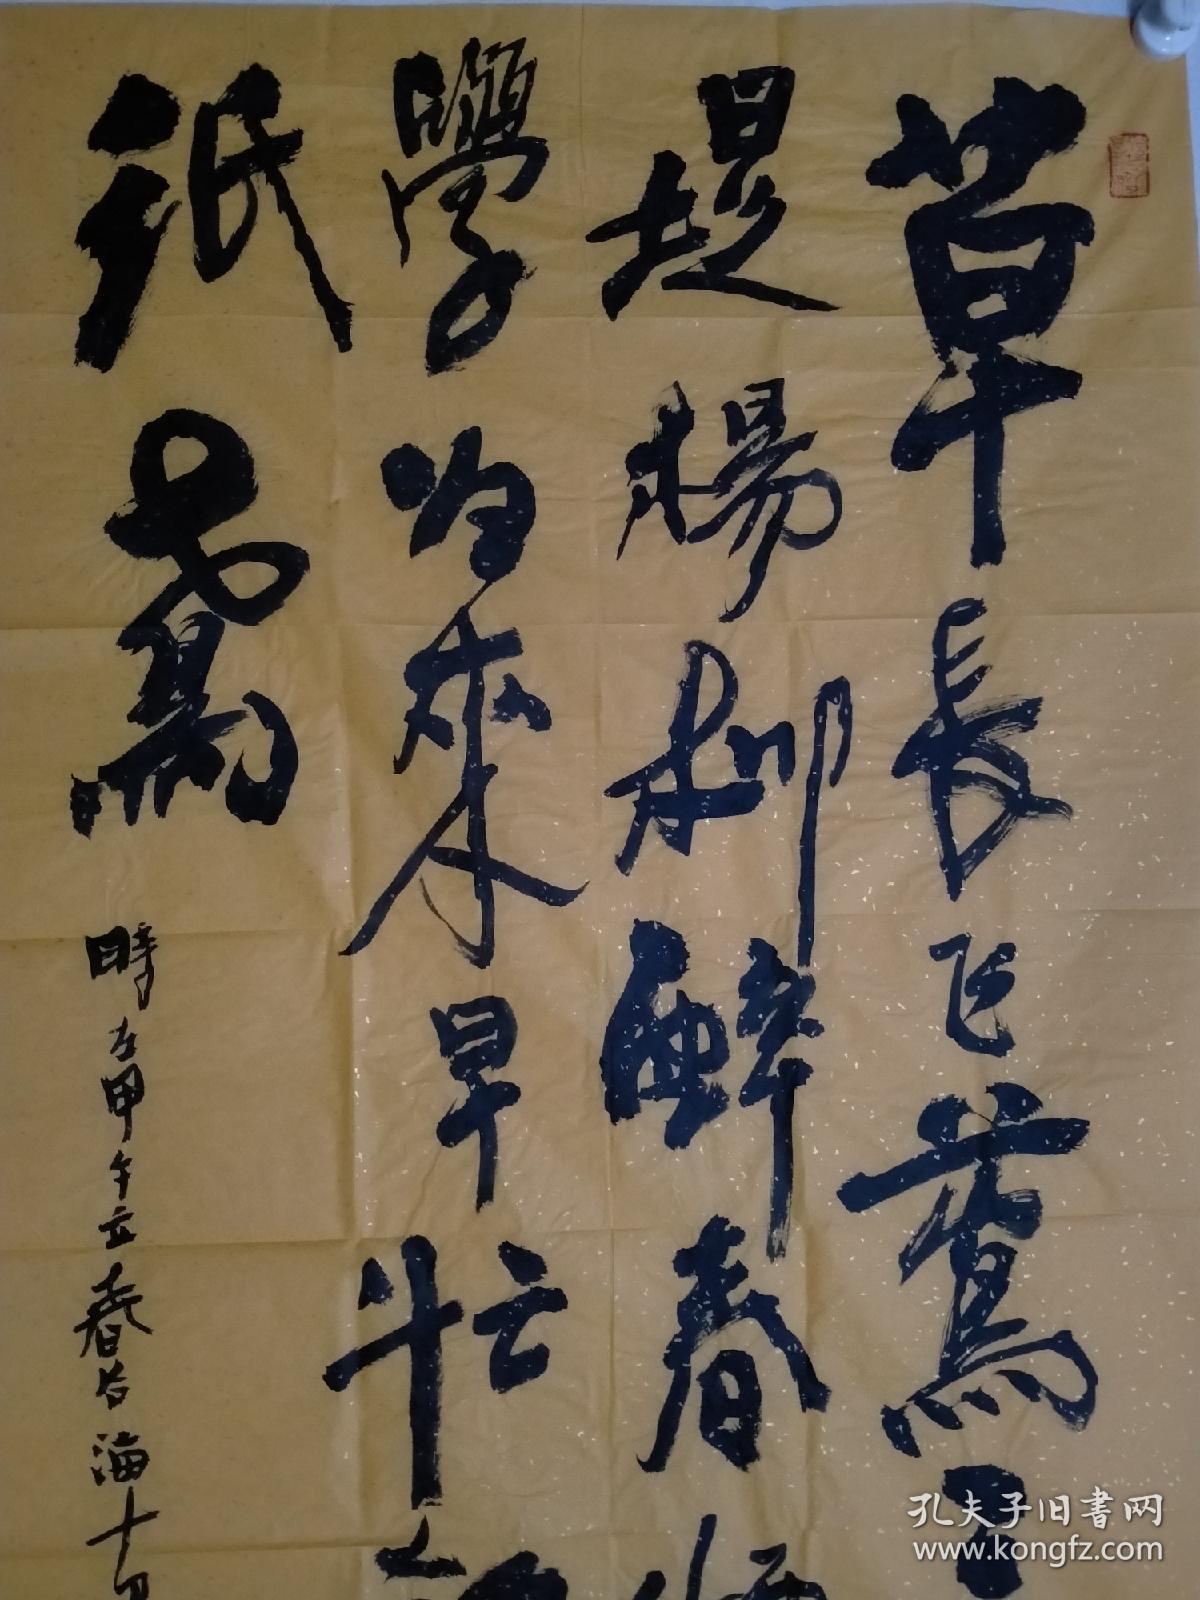 草長飞鶯
堤楊柳醉春
學归來早忙
紙鳶
時在甲午立春海十
孔夫子旧书网
www.kongfz.com